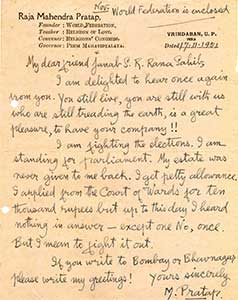 Nov World Federation is enclosed
Raja Mahendra Pratap,
Founder : WORLD FEDERATION,
Teacher : RELIGION OF LOVE,
Convener: RELIGIOUS CONGRESS,
Governor: PREM MAHAVIDYALAYA.
VRINDABAN, U. P.
INDIA
Dated 17.11.1951
My dear friend Janab S. K. Rana Sahib,
I am delighted to hear once again
from you. You still live, you are still with us
who are still treading the earth, is a great
pleasure, to have your company !!
I am fighting the elections. I am
standing for parliament. My estate was
never given to me back. I get petty allowance.
I applied from the Court of Wards for ten
thousand rupees but up to this day I heard
nothing in answer — except one No, once.
But I mean to fight it out.
If you write to Bombay or Bhavnagar
please write my greetings! Yours sincerely
M. Pratap.